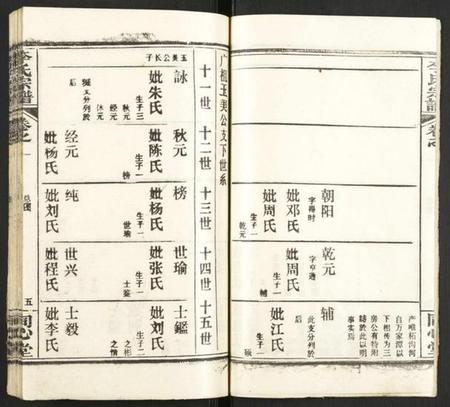 产唯柘沟河
自万家源以
下相传为三
房公有特附
识於此以明
事实焉
辅
此支分列於
后
妣江氏
生子一
硕
乾元
字亨通
妣周氏
生子一
辅
朝阳
字得时
妣邓氏
妣周氏
生子一
乾元
李氏宗谱
同心堂
广祖玉美公支下世系
十一世
十二世
十三世
十四世
十五世
玉美公长子
詠
妣朱氏
生子三
秋元
经元
休元
后
秋元
妣陈氏
生子一
榜
榜
妣杨氏
生子一
世瑜
世瑜
妣张氏
生子一
士鑑
士鑑
妣刘氏
生子二
之彬
之情
经元
妣杨氏
纯
妣刘氏
世兴
妣程氏
士毅
妣李氏
李氏宗谱
五
同心堂